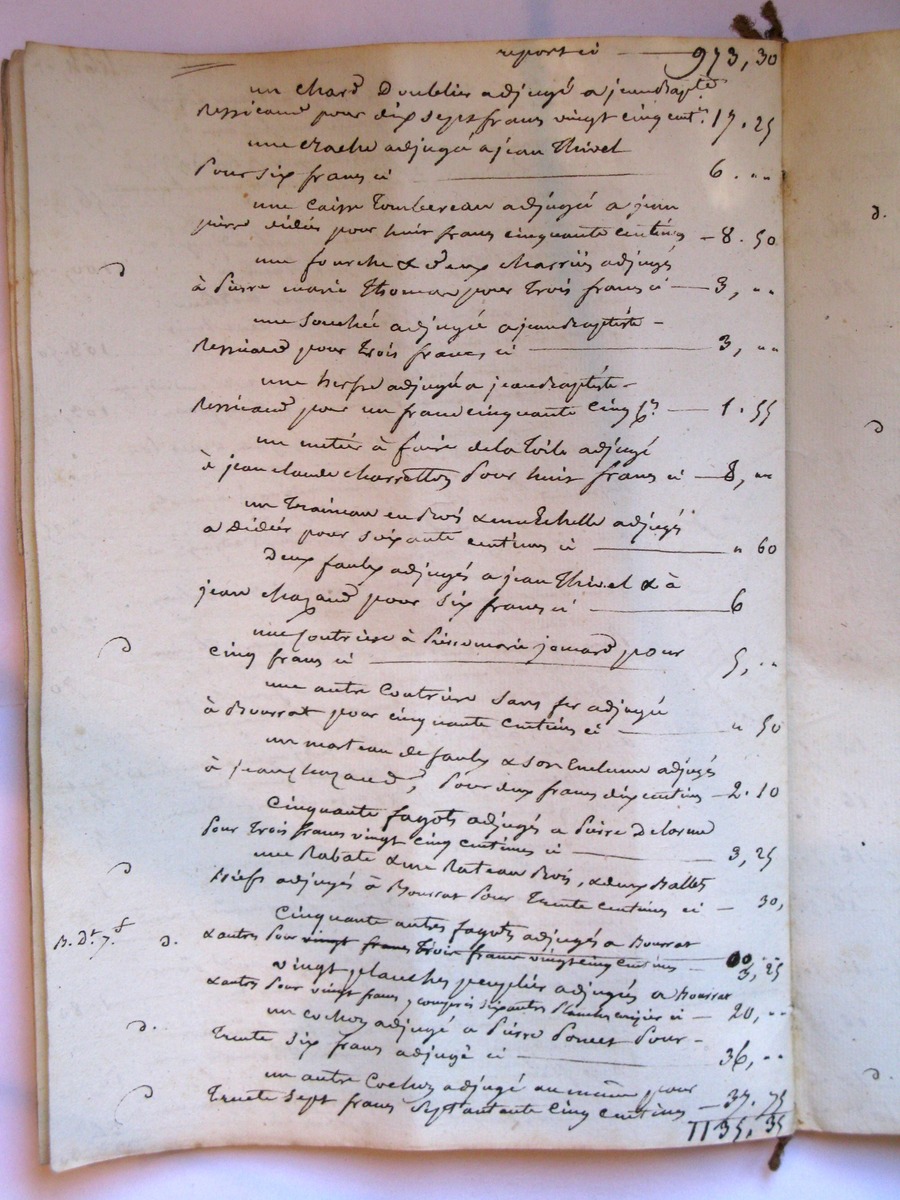 report ci 973, 30
un chard Doublier adjugé a jeanbapte
Ressicaud pour dix sept francs vingt cinq cent. 17. 25
une adjugé a jean Thivel
pour six francs ci 6. " "
une caisse Tombereau adjugé a jean
pierre didier pour huit francs cinquante centimes 8. 50
une fourche & deux adjugés
à Pierre marie Thomas pour trois francs ci 3, " "
une adjugée a jeanbaptiste
Ressicaud pour trois francs ci 3, " "
une herse adjugé a jeanbaptiste
Ressicaud pour un franc cinquante cinq 1. 55
un metier à faire de la toile adjugé
à jean claude charretton pour huit francs ci 8, " "
un traineau en Bois & une Echelle adjugés
a Didier pour soixante centimes ci " 60
Deux faulx adjugés a jean Thivel & à
jean chazaud pour six francs ci 6
une à Pierre marie jomard pour
cinq francs ci 5, " "
une autre Coutriere sans fer adjugé
à Bourrat pour cinquante centimes ci " 50
un marteau de faulx & son Enclume adjugés
à jean chazaud, pour deux francs dix centimes 2. 10
Cinquante fagots adjugés a Pierre Delorme
pour trois francs vingt cinq centimes ci 3, 25
une Rabate & une Rateau Bois, & deux Balles
adjugés à Bourrat pour trente centimes ci 30,
Cinquante autres fagots adjugés a Bourrat
B. Dt 7.f d. & autres pour vingt francs trois francs vingt cinq centimes 3, 25
vingt planches peuplier adjugés a Bourrat
& autres pour vingt francs, y compris six autres planches ci 20, " "
d. un cochon adjugé a Pierre Poncet pour
trente six francs adjugé ci 36, " "
un autre Cochon adjugé au même pour
trente sept francs septantante cinq centimes 37. 75
1135, 35